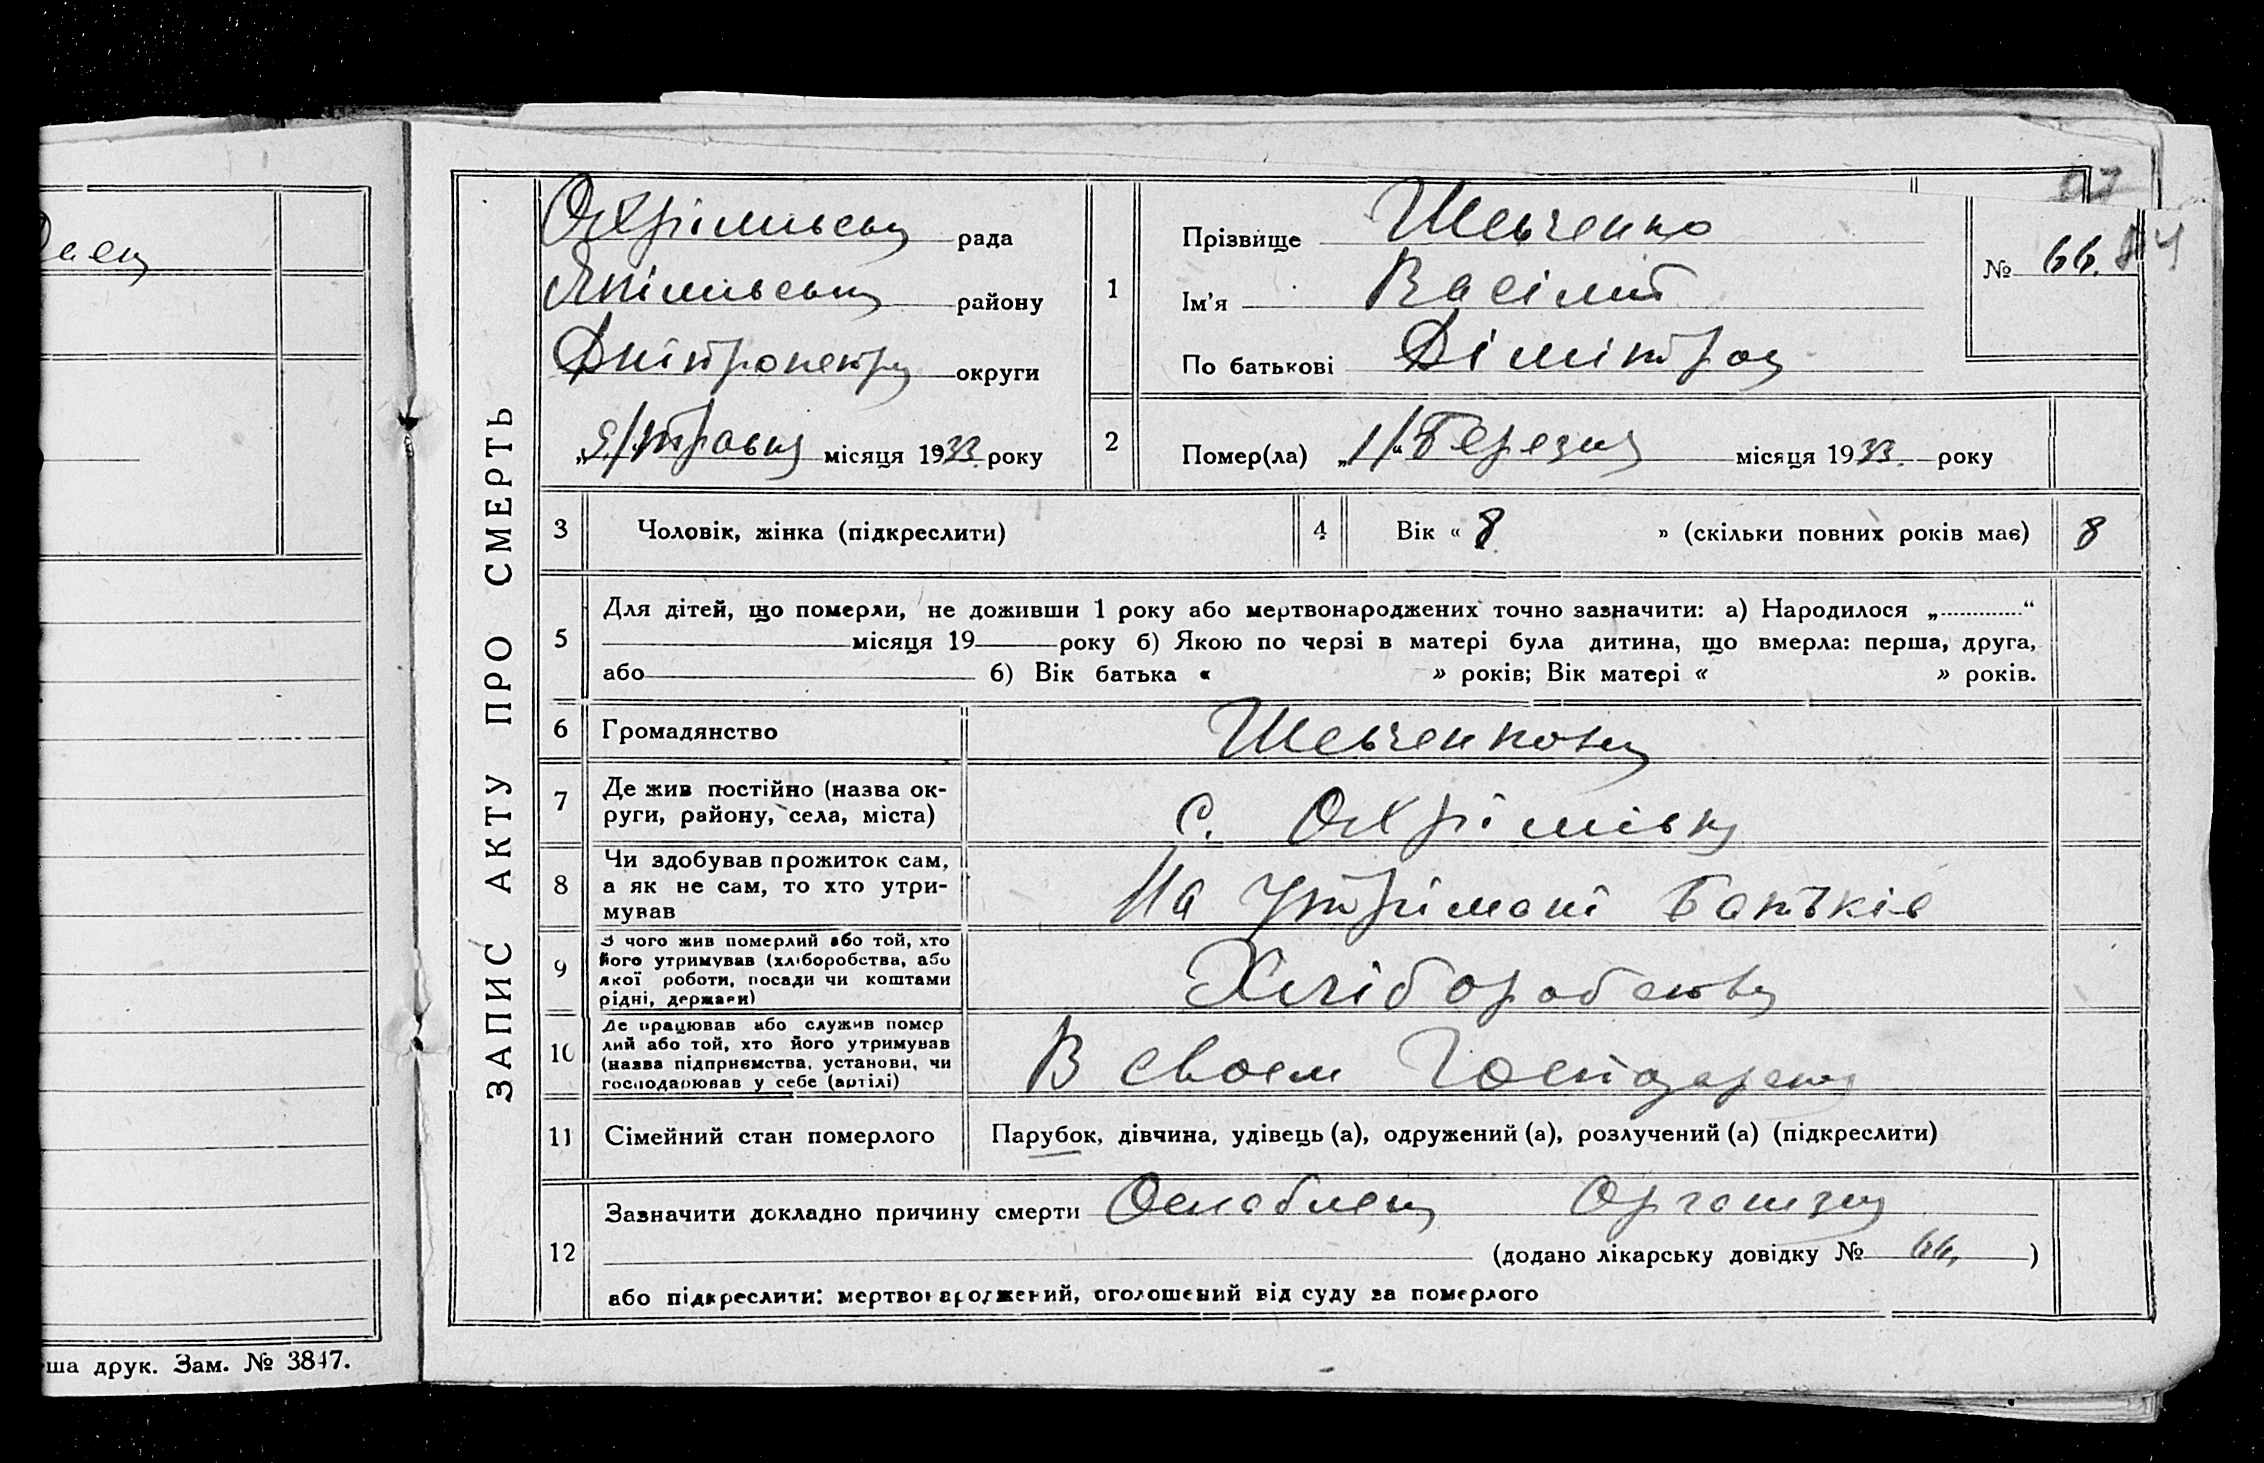 ЗАПИС АКТУ ПРО СМЕРТЬ
Охрімівськ рада
Якімівськ району
Дніпропетр округи
"9/" травня місяця 1933 року
1
Прізвище Шевченко
Ім'я Васілій
По батькові Дімітров
№ 66.
2
Помер(ла) „1/“ Березня місяця 1933. року
3 Чоловік, жінка (підкреслити)
4 Вік « 8 » (скільки повних років має) 8
5 Для дітей, що померли, не доживши 1 року або мертвонароджених точно зазначити: а) Народилося „............“
місяця 19 року б) Якою по черзі в матері була дитина, що вмерла: перша, друга,
або б) Вік батька « » років; Вік матері « » років.
6 Громадянство
7 Де жив постійно (назва ок-
руги, району, села, міста) С. Охрімівка
8 Чи здобував прожиток сам,
а як не сам, то хто утри-
мував На утрімані Батьків
9 З чого жив померлий або той, хто
його утримував (хліборобства, або
якої роботи, посади чи коштами
рідні, держави) Хліборобство
10 Де працював або служив помер
лий або той, хто його утримував
(назва підприємства, установи, чи
господарював у себе (артілі) В своем Господарстві
11 Сімейний стан померлого Парубок, дівчина, удівець (а), одружений (а), розлучений (а) (підкреслити)
12 Зазначити докладно причину смерти Ослаблен Організм
(додано лікарську довідку № 66, )
або підкреслити: мертвонароджений, оголошений від суду за померлого
ша друк. Зам. № 3847.